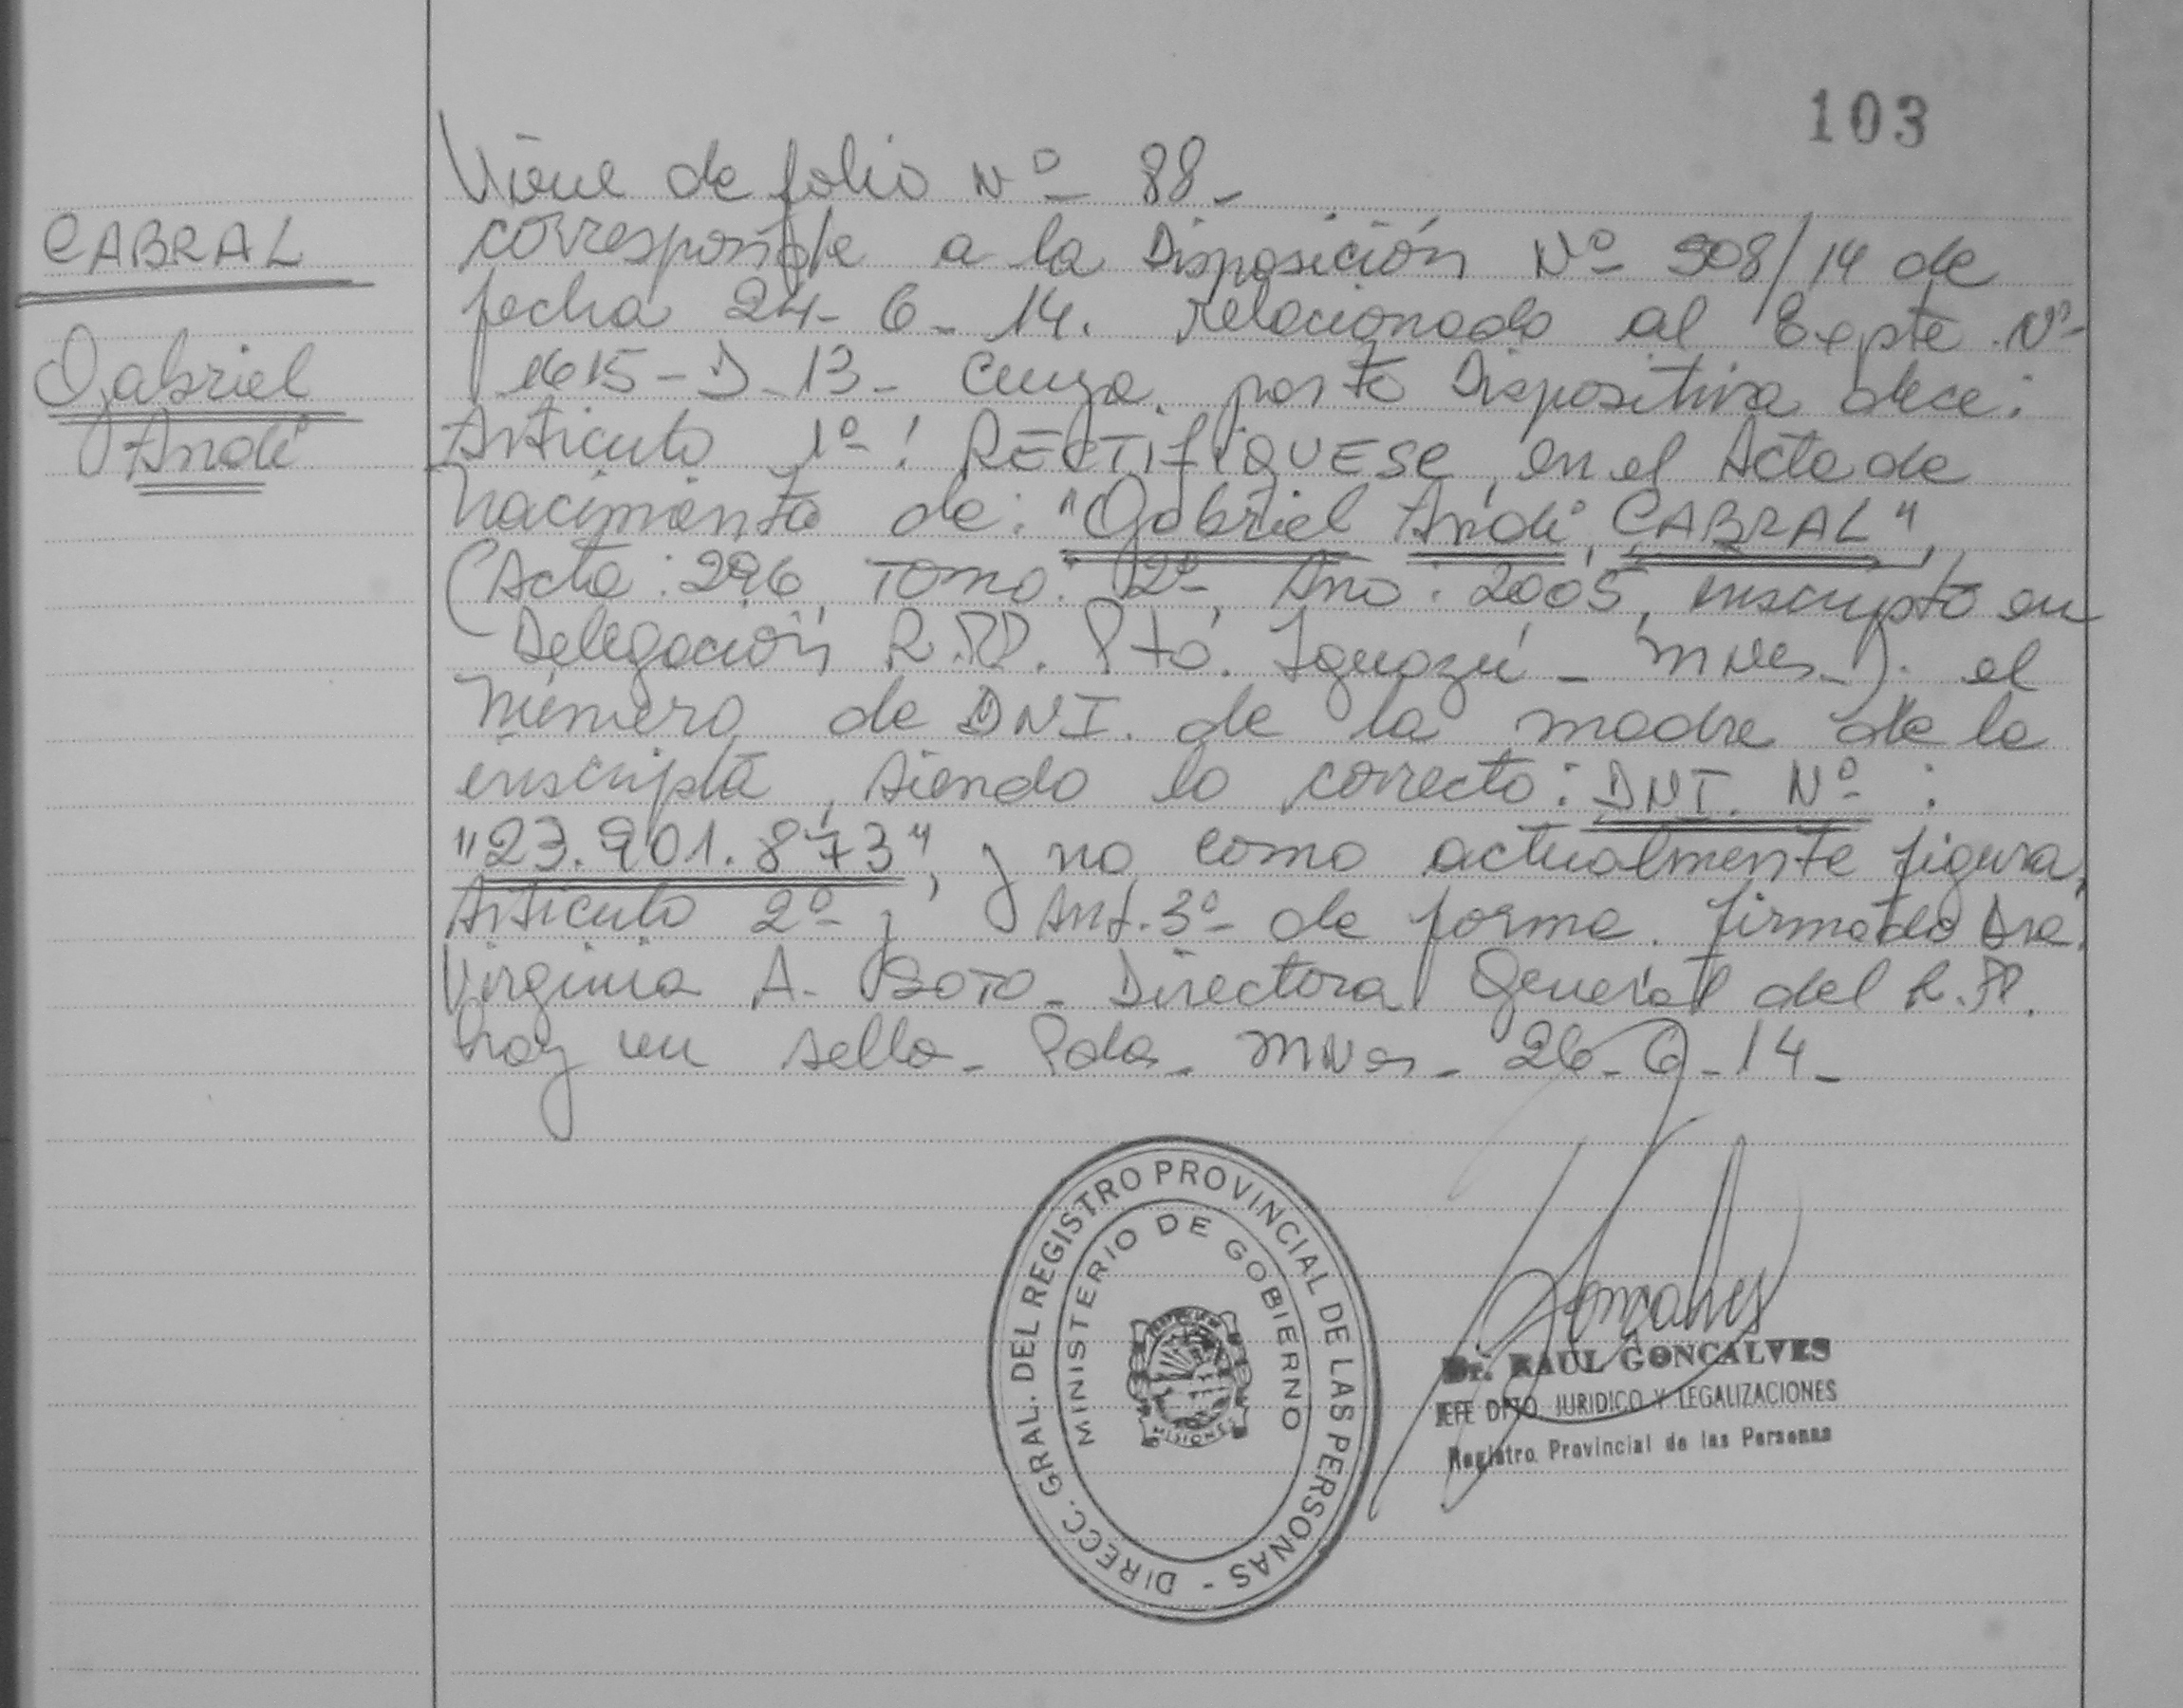 103
Viene de folio Nº 88-
CABRAL
Gabriel
André
corresponde a la Disposición Nº 508/14 de
fecha 24-6-14. relacionado al Expte Nº
1615-D-13- Cuya parte Dispositiva dice:
Articulo 1º: RECTIFIQUESE, en el Acta de
nacimiento de: "Gabriel André, CABRAL",
(Acta: 296, Tomo: 2º, Año: 2005, inscripto en
Delegación R.PP. Pto. Iguazú - Mnes-). el
número de DNI. de la madre de la
inscripta, siendo lo correcto: DNI. Nº:
"23.901.873", y no como actualmente figura.
Articulo 2º y Art. 3º- de forma. firmado Dra.
Virginia A. Boto- Directora General del R.PP.
hay un sello- Pdas- Mnes- 26-6-14-
DIRECC. GRAL. DEL REGISTRO PROVINCIAL DE LAS PERSONAS -
MINISTERIO DE GOBIERNO
MISIONES
Dr. RAUL GONCALVES
JEFE DPTO. JURIDICO Y LEGALIZACIONES
Registro Provincial de las Personas